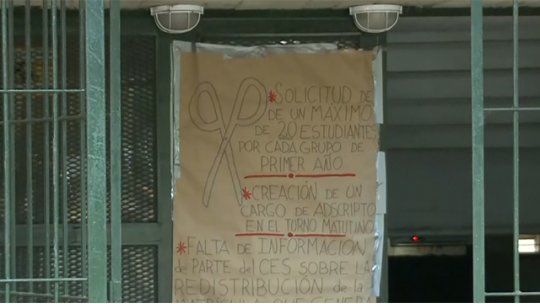 *SOLICITUD DE
DE UN MÁXIMO
DE 20 ESTUDIANTES
POR CADA GRUPO DE
PRIMER AÑO
*CREACIÓN DE UN
CARGO DE ADSCRIPTO
EN EL TURNO MATUTINO
*FALTA DE INFORMACIÓN
de PARTE del CES SOBRE LA
REDISTRIBUCIÓN de la
MATRÍCULA QUE GENERA